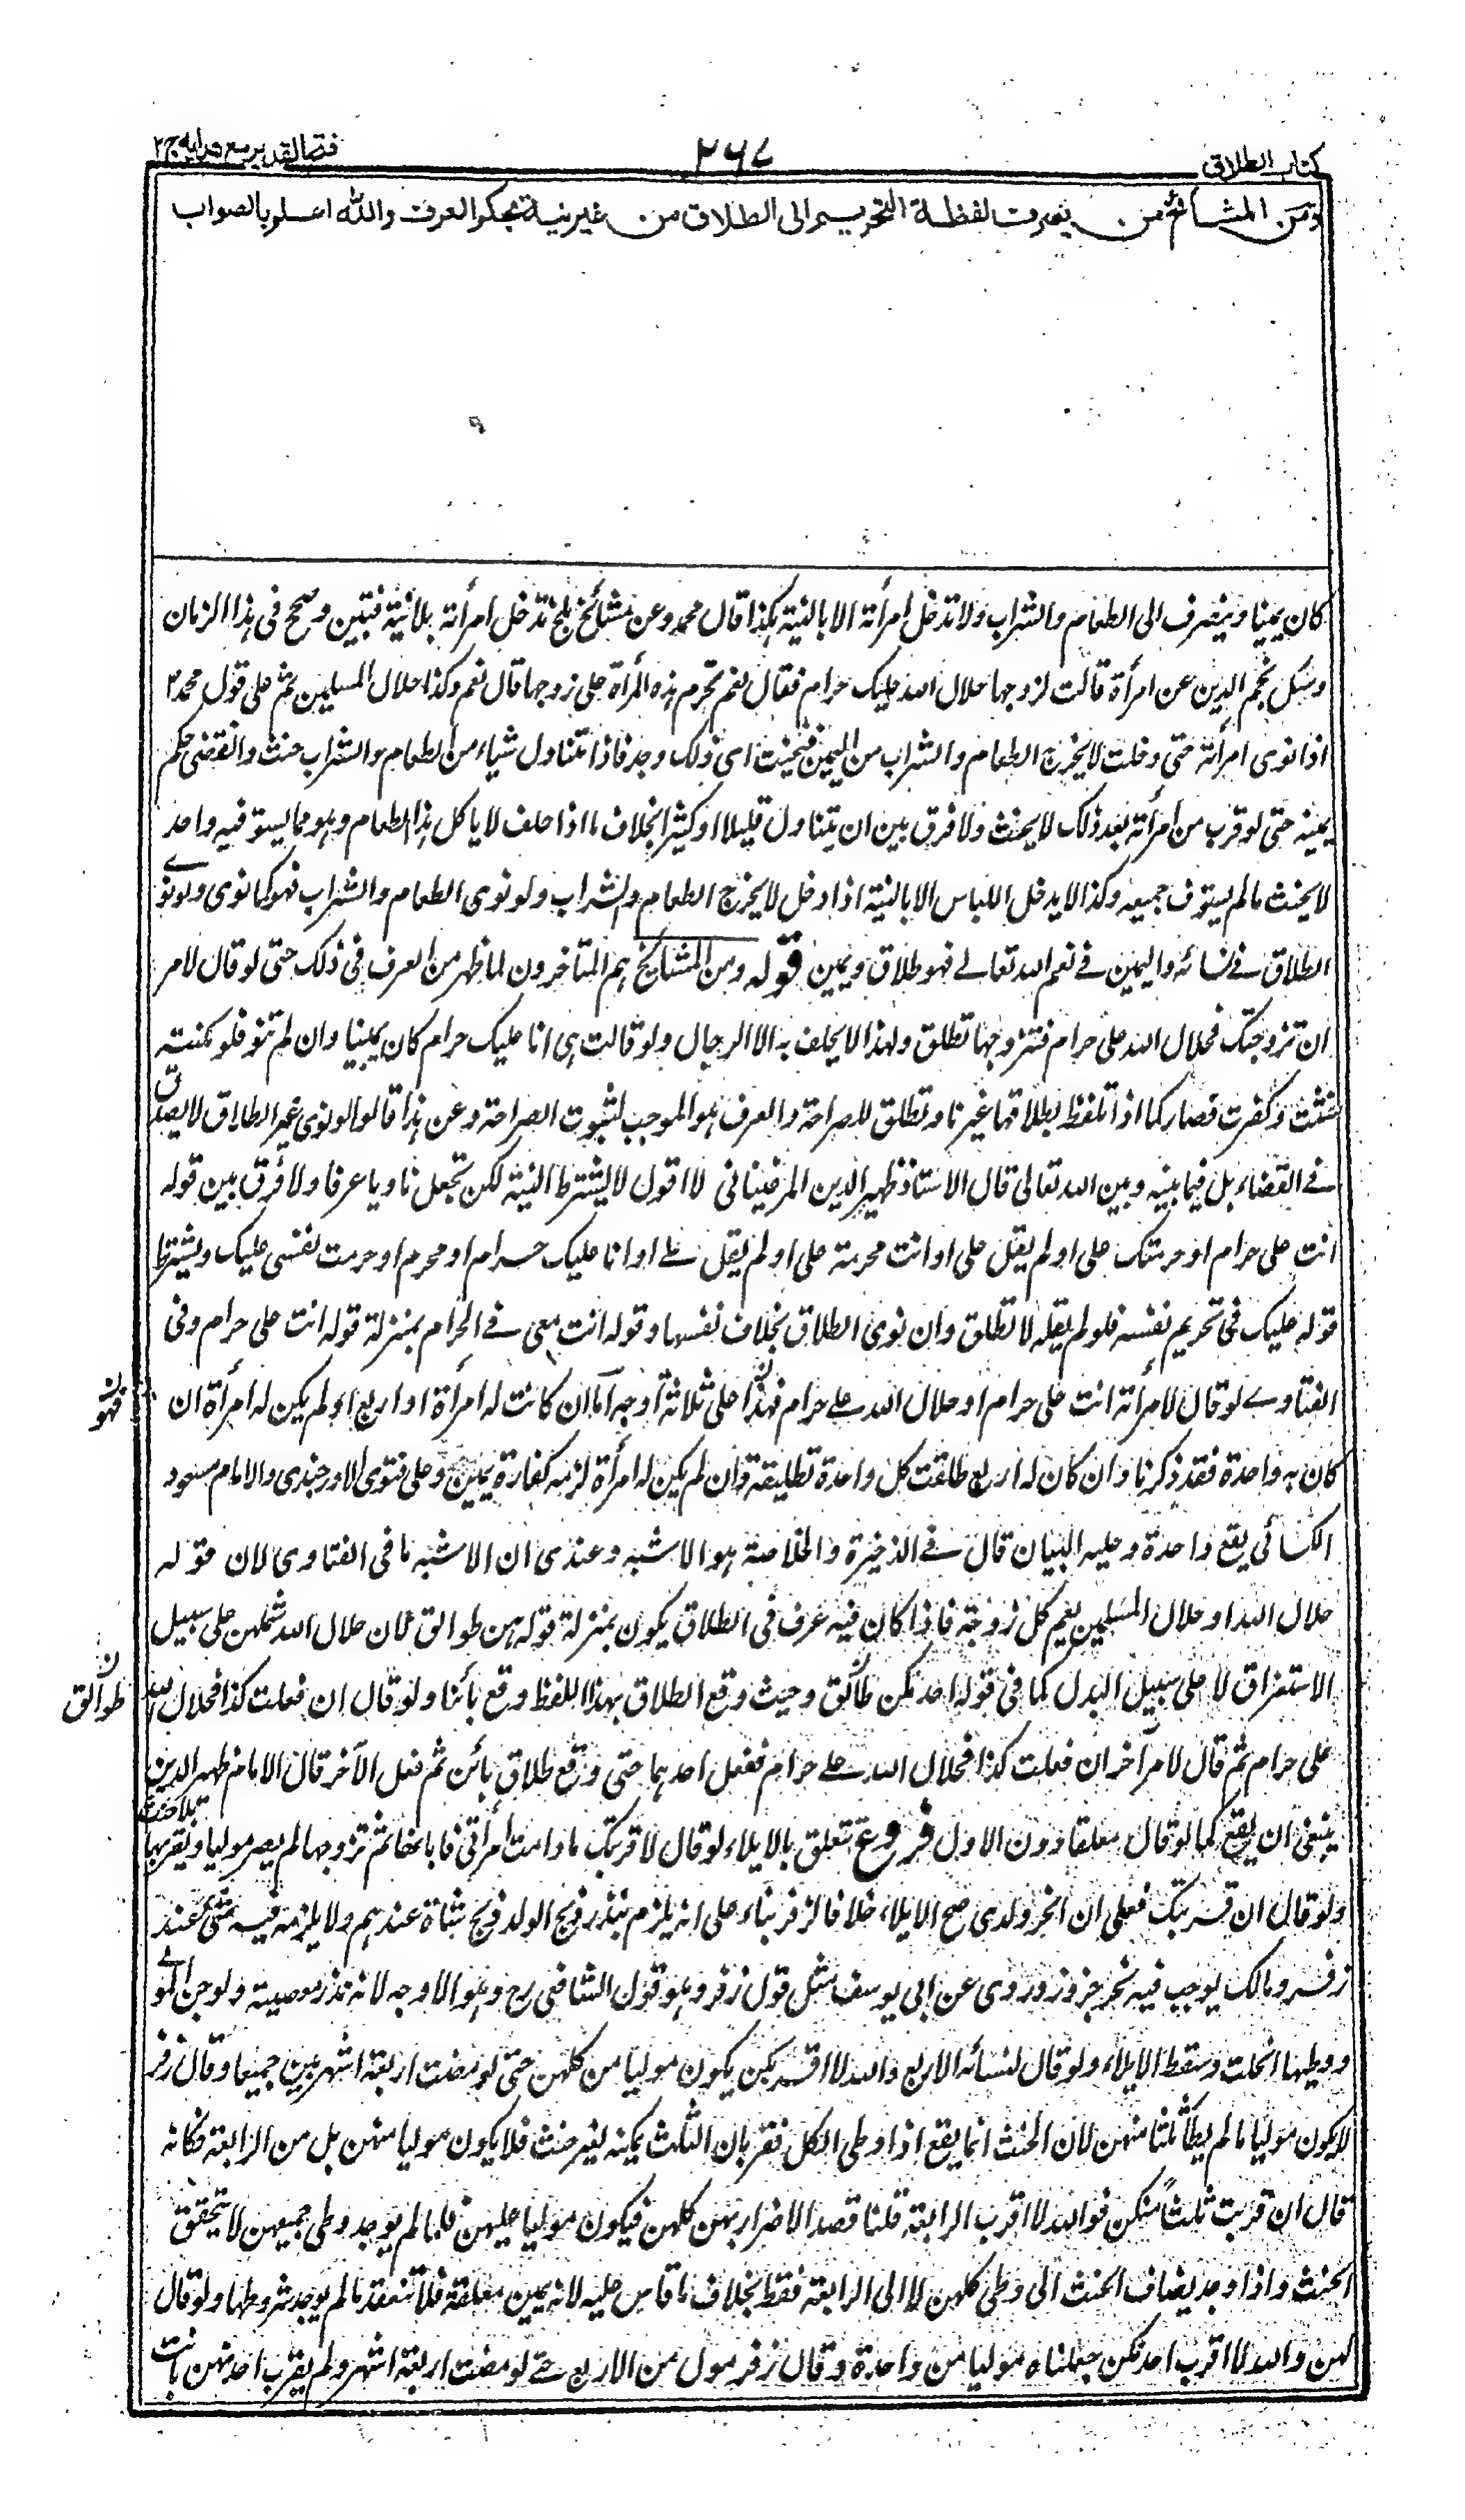 كتاب الطلاق
٢٦٧
فتح القدير مع هدايه ج ٢
ومن المشائخ من يصرف لفظة التحريم الى الطلاق من غير نية بحكم العرف والله اعلم بالصواب
كان يمينا وينصرف الى الطعام والشراب ولا تدخل امرأته الا بالنية هكذا قال محمد وعن مشائخ بلخ تدخل امرأته بلا نية فتبين وصح فى هذا الزمان
وسئل نجم الدين عن امرأة قالت لزوجها حلال الله عليك حرام فقال نعم تحرم هذه المرأة على زوجها قال نعم وكذا حلال المسلمين ثم على قول محمد
اذا نوى امرأته حتى دخلت لا يخرج الطعام والشراب من اليمين فيحنث اى ذلك وجد فاذا تناول شياء من الطعام والشراب حنث وانقضى حكم
يمينه حتى لو قرب من امرأته بعد ذلك لا يحنث ولا فرق بين ان يتناول قليلا او كثيرا بخلاف ما اذا حلف لا ياكل هذا الطعام وهو مما يستوفيه واحد
لا يحنث ما لم يستوف جميعه وكذا لا يدخل اللباس الا بالنية اذا دخل لا يخرج الطعام والشراب ولو نوى الطعام والشراب فهو كما نوى ولو نوى
الطلاق فى نسائه واليمين فى نعم الله تعالى فهو طلاق ويمين قوله ومن المشائخ هم المتأخرون لما ظهر من العرف فى ذلك حتى لو قال لامرأة
ان تزوجتك فحلال الله على حرام فتزوجها تطلق ولهذا لا يحلف به الا الرجال ولو قالت هى انا عليك حرام كان يمينا وان لم تنو فلو مكنته
حنثت وكفرت فصار كما اذا تلفظ بطلاقها غير ناو تطلق للصراحة والعرف هو الموجب لثبوت الصراحة وعن هذا قالوا لو نوى غير الطلاق لا يصدق
فى القضاء بل فيما بينه وبين الله تعالى قال الاستاذ ظهير الدين المرغينانى لا اقول لا يشترط النية لكن تجعل ناويا عرفا ولا فرق بين قوله
انت على حرام او حرمتك على او لم يقل على او انت محرمة على او لم يقل على او انا عليك حرام او محرم او حرمت نفسى عليك ويشترط
قوله عليك فى تحريم نفسه فلو لم يقله لا تطلق وان نوى الطلاق بخلاف نفسها وقوله انت معى فى الحرام بمنزلة قوله انت على حرام وفى
الفتاوى لو قال لامرأته انت على حرام او حلال الله على حرام فهذا على ثلاثة اوجه اما ان كانت له امرأة او اربع او لم يكن له امرأة ان
فهو ن
كان به واحدة فقد ذكرنا وان كان له اربع طلقت كل واحدة تطليقة وان لم يكن له امرأة لزمه كفارة يمين وعلى فتوى الاوزجندى والامام مسعود
الكسائى يقع واحدة وعليه البيان قال فى الذخيرة والخلاصة هو الاشبه وعندى ان الاشبه ما فى الفتاوى لان قوله
حلال الله او حلال المسلمين يعم كل زوجة فاذا كان فيه عرف فى الطلاق يكون بمنزلة قوله هن طوالق لان حلال الله شملهن على سبيل
الاستغراق لا على سبيل البدل كما فى قوله احدكن طالق وحيث وقع الطلاق بهذا اللفظ وقع بائنا ولو قال ان فعلت كذا فحلال الله
طوالق ن
على حرام ثم قال لامر آخر ان فعلت كذا فحلال الله على حرام ففعل احدهما حتى وقع طلاق بائن ثم فعل الآخر قال الامام ظهير الدين
ينبغى ان يقع كما لو قال معلقا دون الاول فروع تتعلق بالايلاء لو قال لا قربتك ما دامت امرأتى فابانها ثم تزوجها لم يصر موليا ويقربها بلا حنث
ولو قال ان قربتك فعلى ان انحر ولدى صح الايلاء خلافا لزفر بناء على انه يلزم بنذر ذبح الولد ذبح شاة عندهم ولا يلزمه فيه شئ عند
زفر ومالك يوجب فيه نحر جزور وروى عن ابى يوسف مثل قول زفر وهو قول الشافعى رح وهو الاوجه لانه نذر معصية ولو جن المولى
ووطيها انحلت وسقط الايلاء ولو قال لنسائه الاربع والله لا اقربكن يكون موليا من كلهن حتى لو مضت اربعة اشهر بن جميعا وقال زفر
لا يكون موليا ما لم يطأ ثلثا منهن لان الحنث انما يقع اذا وطى الكل فقربان الثلث يمكنه بغير حنث فلا يكون موليا منهن بل من الرابعة فكانه
قال ان قربت ثلثا منكن فوالله لا اقرب الرابعة قلنا قصد الاضرار بهن كلهن فيكون موليا عليهن فلما لم يوجد وطى جميعهن لا يتحقق
الحنث واذا وجد يضاف الحنث الى وطى كلهن لا الى الرابعة فقط بخلاف ما قاس عليه لانه يمين معلقة فلا تنعقد ما لم يوجد شرطها ولو قال
لهن والله لا اقرب احدكن جعلناه موليا من واحدة وقال زفر مول من الاربع حتى لو مضت اربعة اشهر ولم يقرب احدمنهن بانت